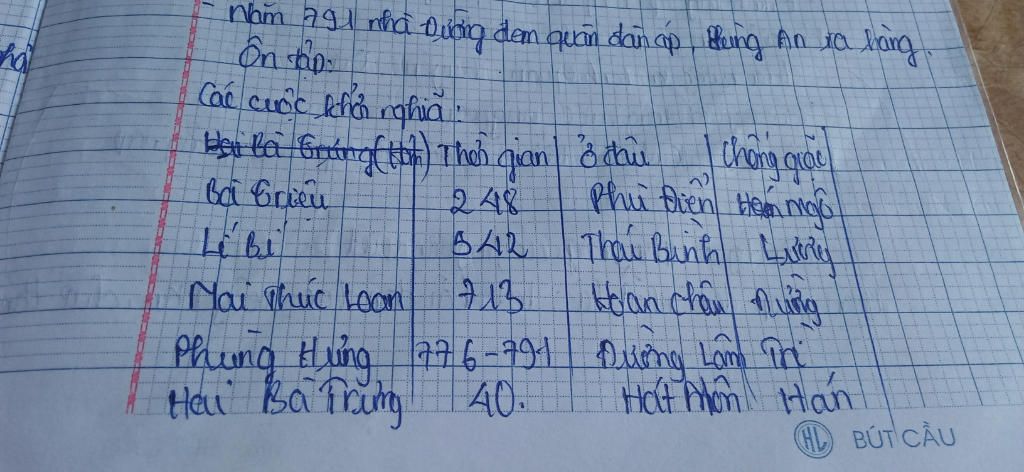 - Năm 791 nhà Đường đem quân đàn áp, Phùng An ra hàng.
Ôn tập:
Các cuộc khởi nghĩa:
Hai Bà Trưng (tên) Thời gian Ở đâu Chống giặc
Bà Triệu 248 Phú Điền Ngô
Lí Bí 542 Thái Bình Lương
Mai Thúc Loan 713 Hoan Châu Đường
Phùng Hưng 776-791 Đường Lâm
Hai Bà Trưng 40. Hát Môn Hán
HL BÚT CẦU